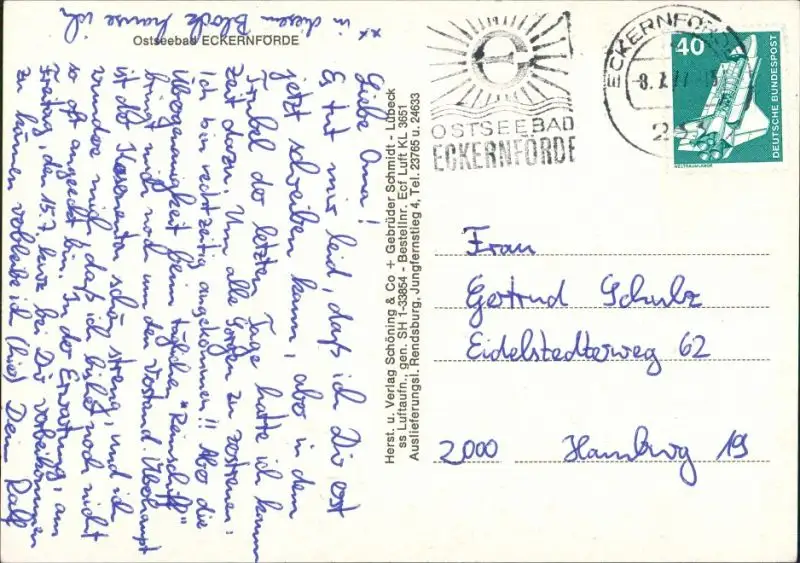 xx in diesem Block hause ich
Ostseebad ECKERNFÖRDE
Liebe Oma!
Es tut mir leid, daß ich Dir erst
jetzt schreiben kann, aber in dem
Trubel der letzten Tage hatte ich kaum
Zeit dazu. Um alle Sorgen zu zerstreuen:
Ich bin rechtzeitig angekommen!! Aber die
Übergenauigkeit beim täglichen "Reinschiff"
bringt mich noch um den Verstand. Überhaupt
ist der Kasernenton schön streng, und ich
wundere mich, daß ich bisher noch nicht
so oft angeeckt bin. In der Erwartung, am
Freitag, den 15.7. kurz bei Dir vorbeikommen
zu können verbleibe ich (hier) Dein Ralf
Herst. u. Verlag Schöning & Co + Gebrüder Schmidt - Lübeck
ss Luftaufn., gen. SH 1-33854 - Bestellnr. Ecf Luft KL 3651
Auslieferungsl. Rendsburg, Jungfernstieg 4, Tel. 23765 u. 24633
OSTSEEBAD
ECKERNFÖRDE
ECKERNFÖRDE
40
DEUTSCHE BUNDESPOST
WELTRAUMLABOR
Frau
Gertrud Schulz
Eidelstedterweg 62
2000 Hamburg 19